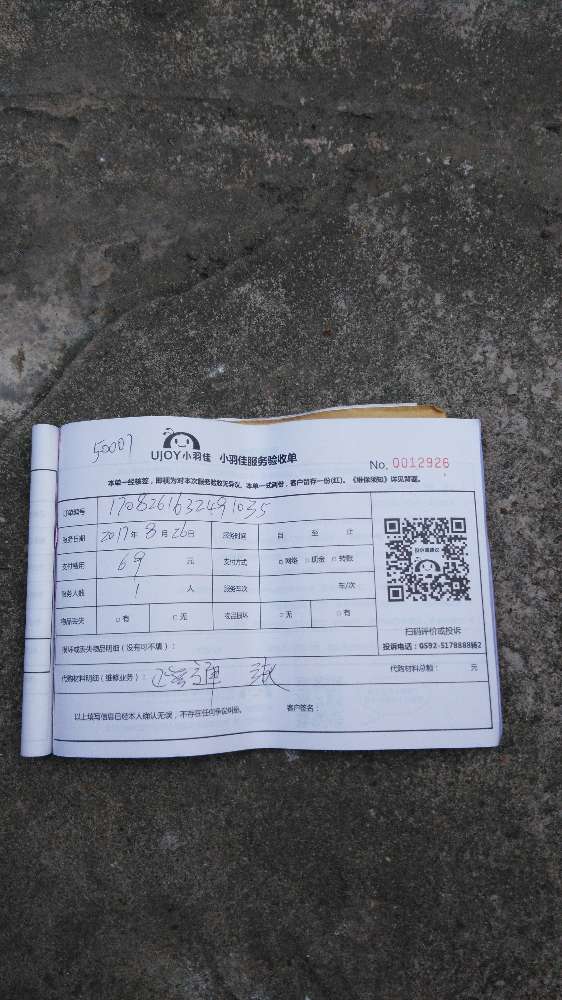 50007
UJOY小羽佳 小羽佳服务验收单
No. 0012926
本单一经核签，即视为对本次服务验收无异议。本单一式两份，客户留存一份(红)。《维保须知》详见背面。
订单编号
服务日期 2017年 8月 26日 服务时间 自 至 止
支付费用 69 元 支付方式 □网络 □现金 □转账
服务人数 1 人 服务车次 车/次
物品丢失 □有 □无 物品损坏 □无 □有
扫码评价或投诉
投诉电话：0592-5178888转2
损坏或丢失物品明细（没有可不填）：
代购材料明细（维修业务）：
代购材料总额： 元
以上填写信息已经本人确认无误，不存在任何争议纠纷。 客户签名：